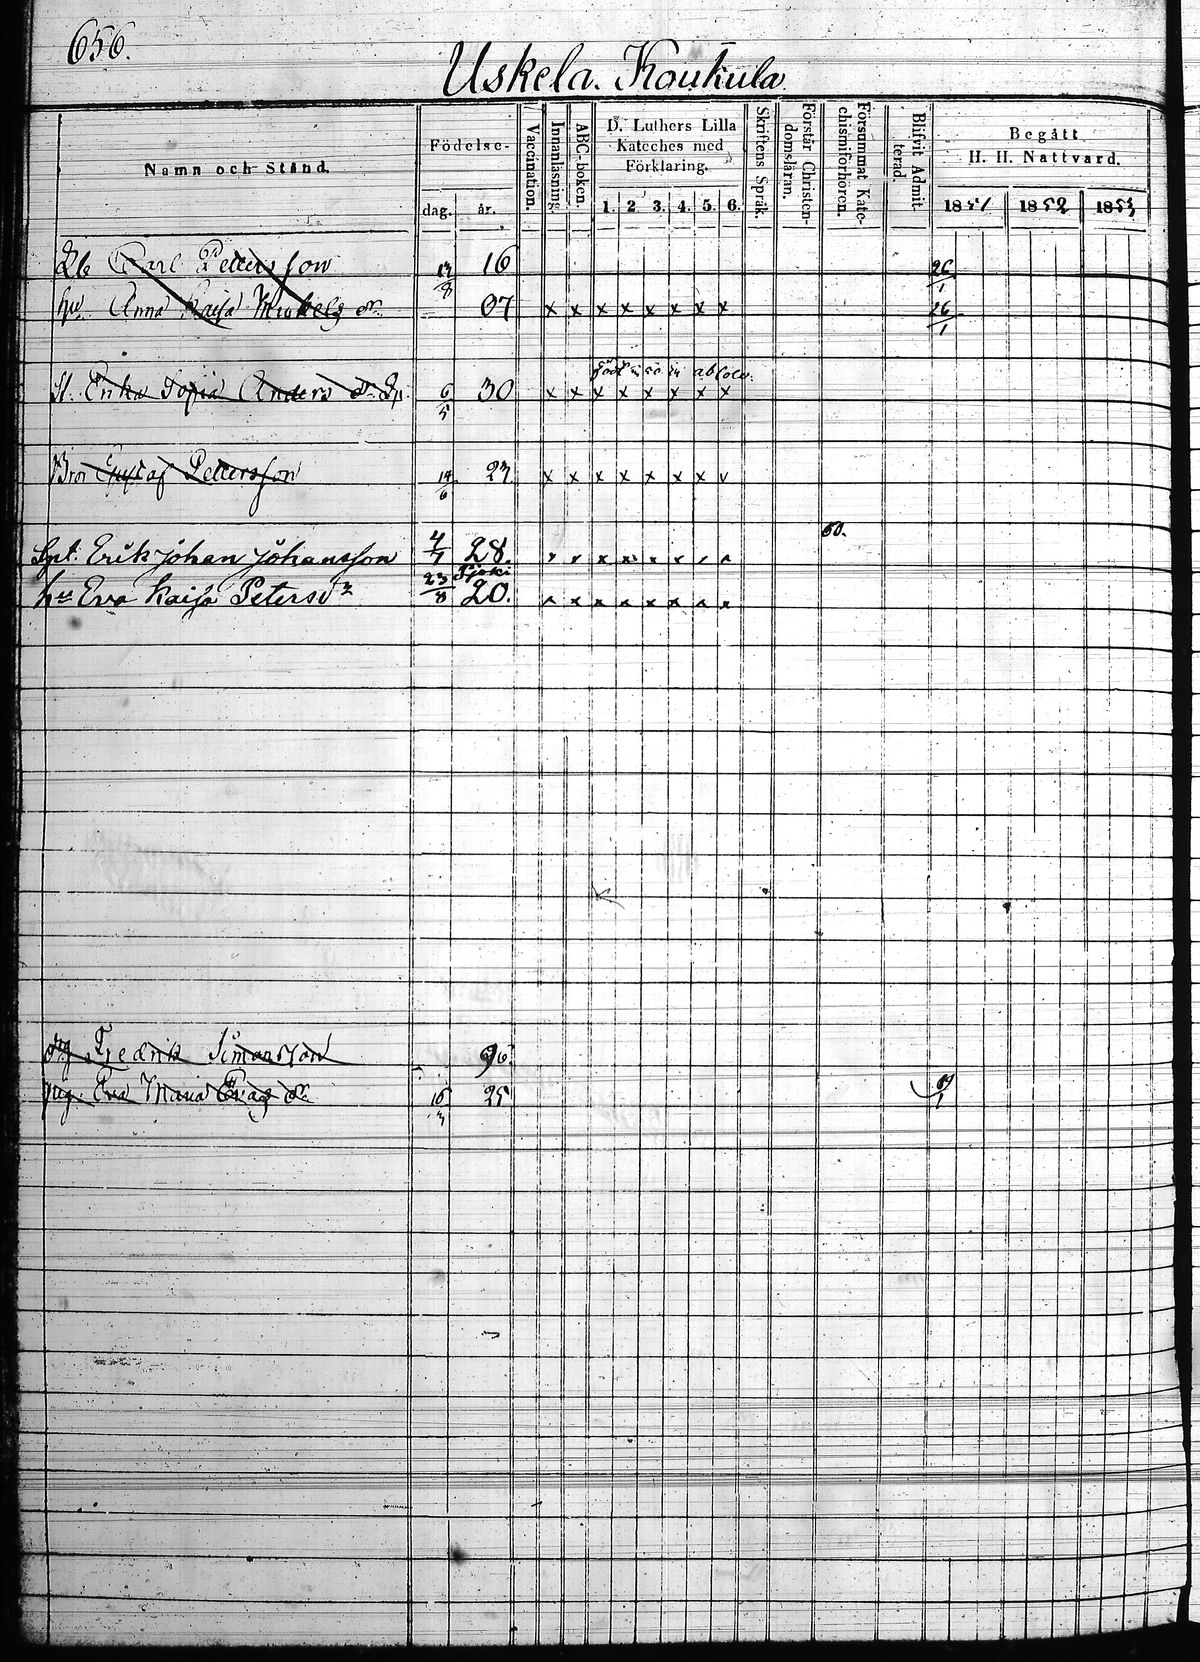 656.
Uskela. Koukula
Namn och Stånd.
Födelse-
dag.
år.
Vaccination.
Innanläsning.
ABC-boken.
D. Luthers Lilla
Kateches med
Förklaring.
1. 2. 3. 4. 5. 6.
Skriftens Språk.
Förstår Christen-
domsläran.
Försummat Kate-
chismiförhören.
Blifvit Admit-
terad.
Begått
H. H. Nattvard.
1851 1852 1853
Carl Pettersson 13/8 16 26/1
hu. Anna Kaisa Mickels dr. 07 x x x x x x x x 26/1
Erika Sofia Anders dr. 6/5 30 x x x x x x x x
Bror Gustaf Pettersson 14/6 23 x x x x x x x v
50.
Erik Johan Johansson 4/1 28.
hu Eva Kaisa Petersdr 23/8 20.
Fredrik Simonsson 96
Eva Maria 16/3 25